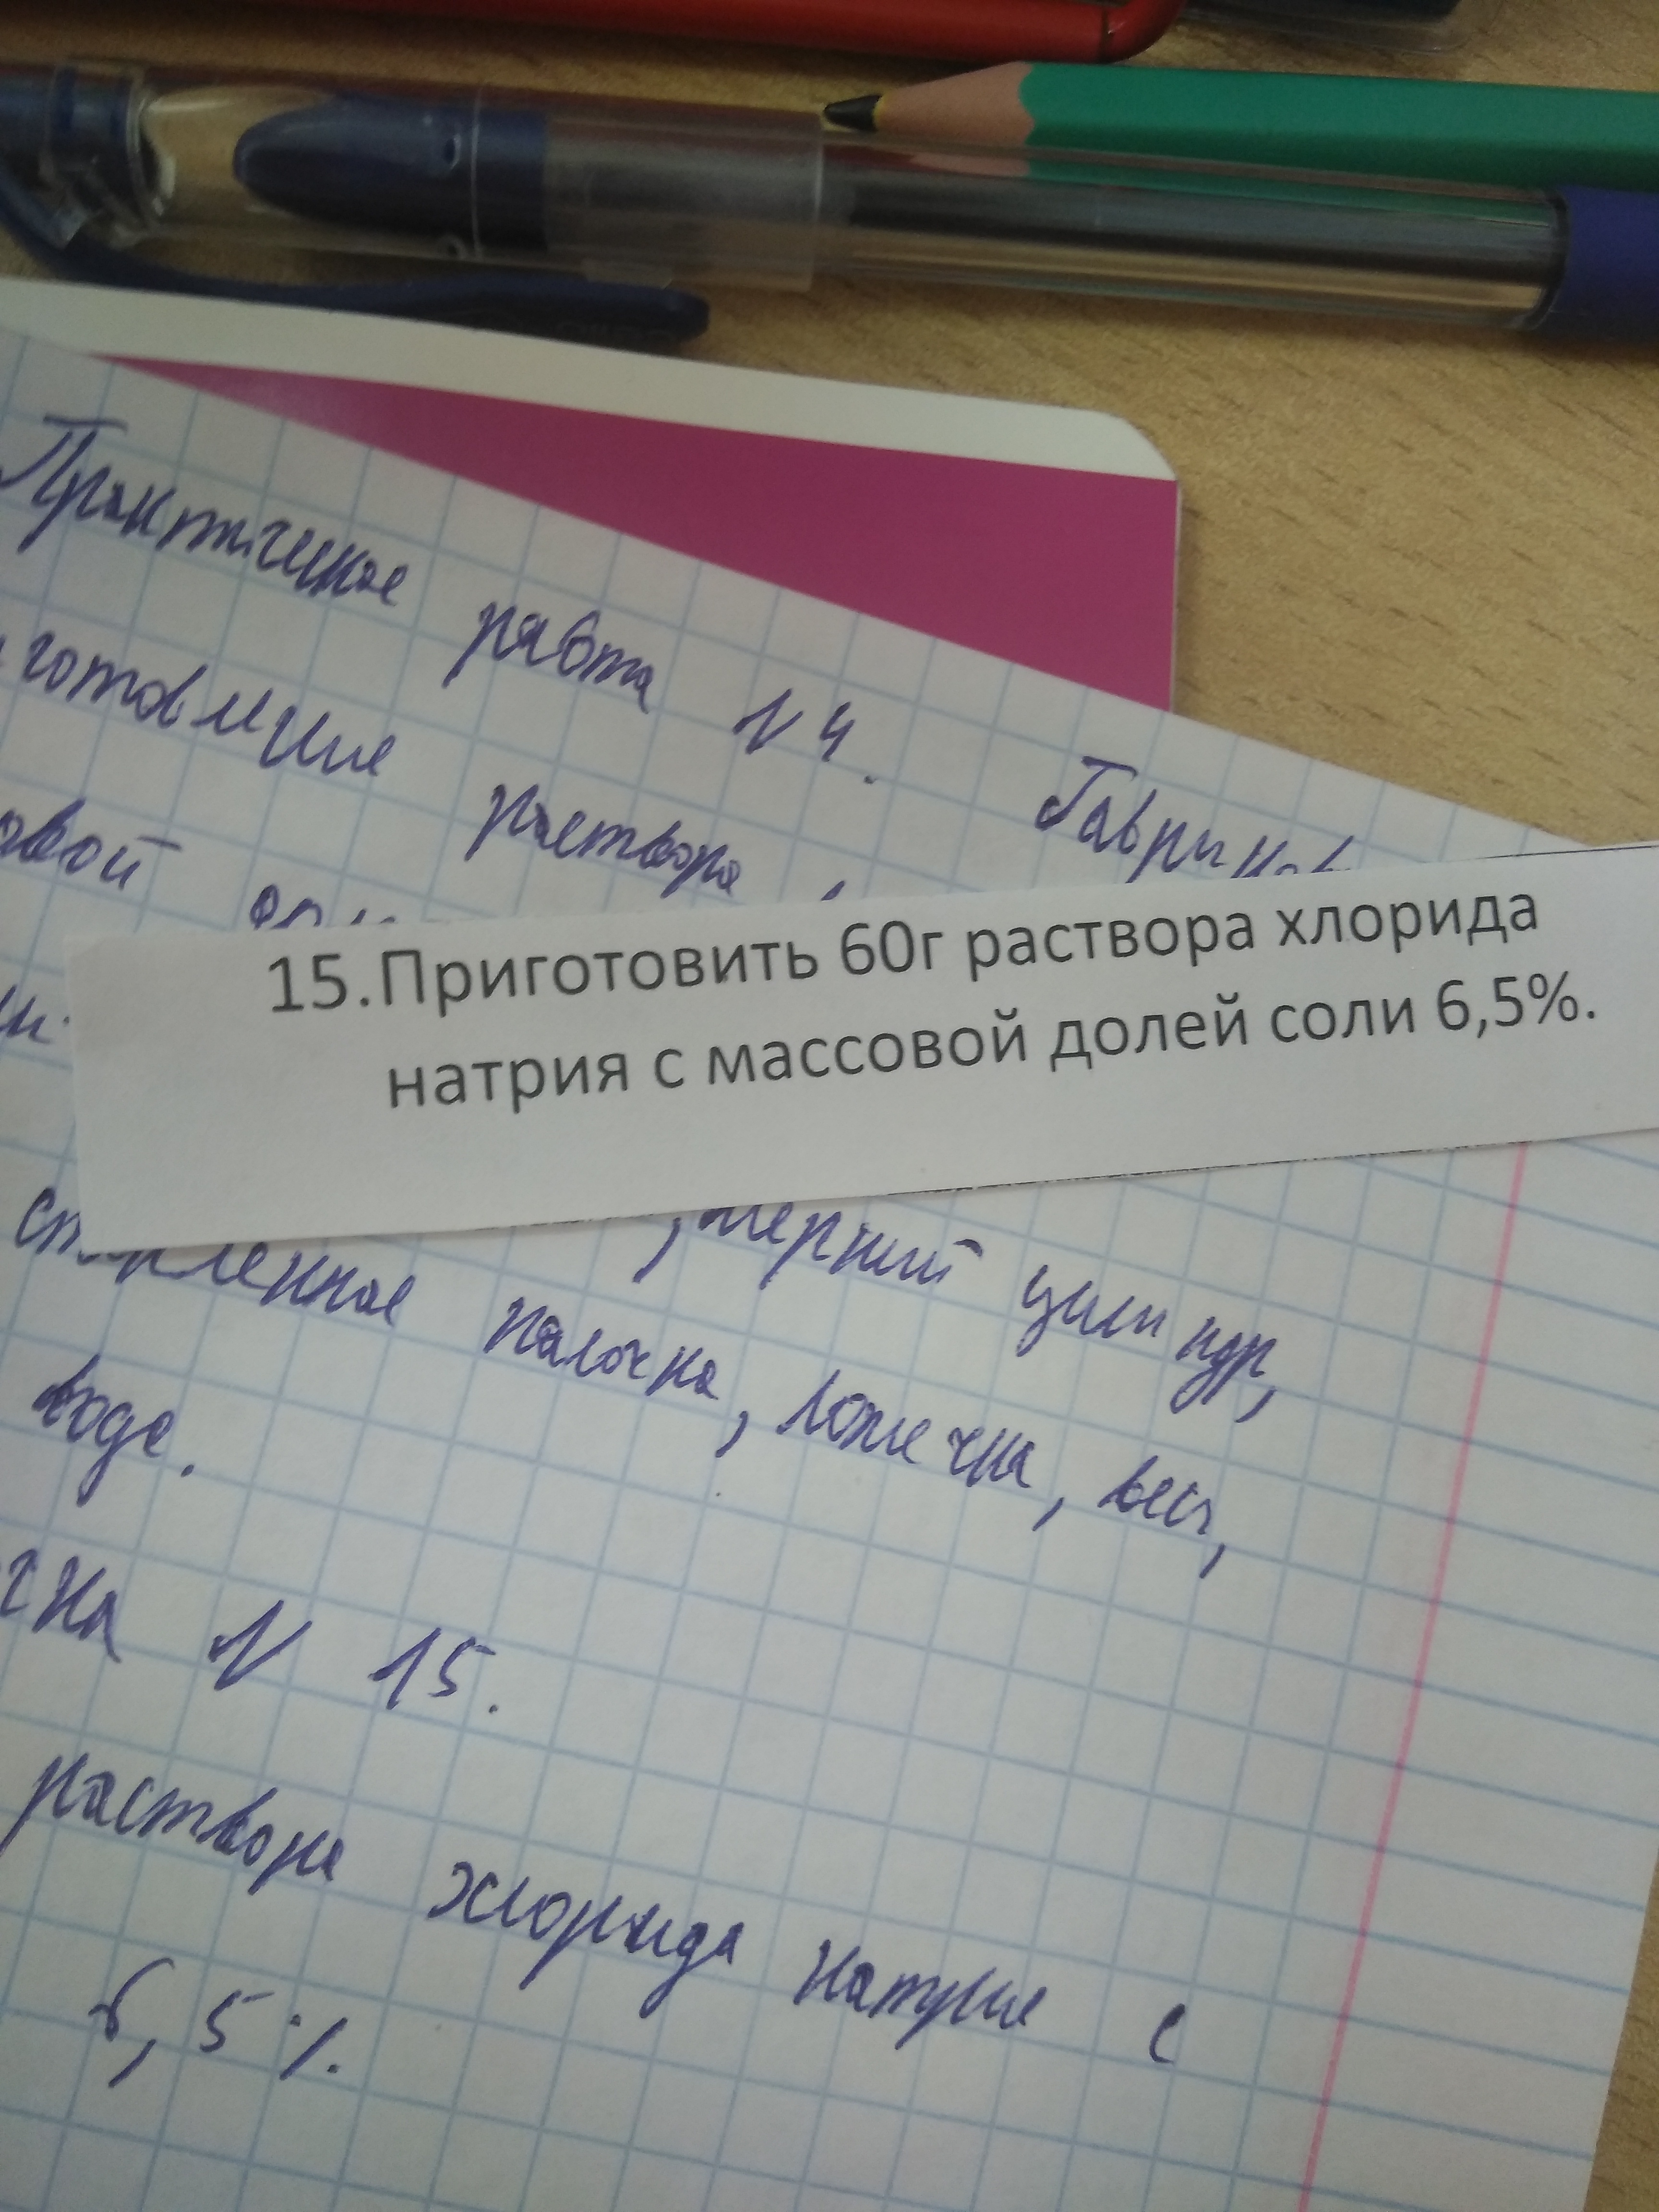 Практическая работа №4.
готовление раствора
овой
Гаврилов
15.Приготовить 60г раствора хлорида
натрия с массовой долей соли 6,5%.
, мерный цилиндр,
стеклянная палочка, ложечка, весы,
вода.
чка № 15.
раствора хлорида натрия с
6,5%.